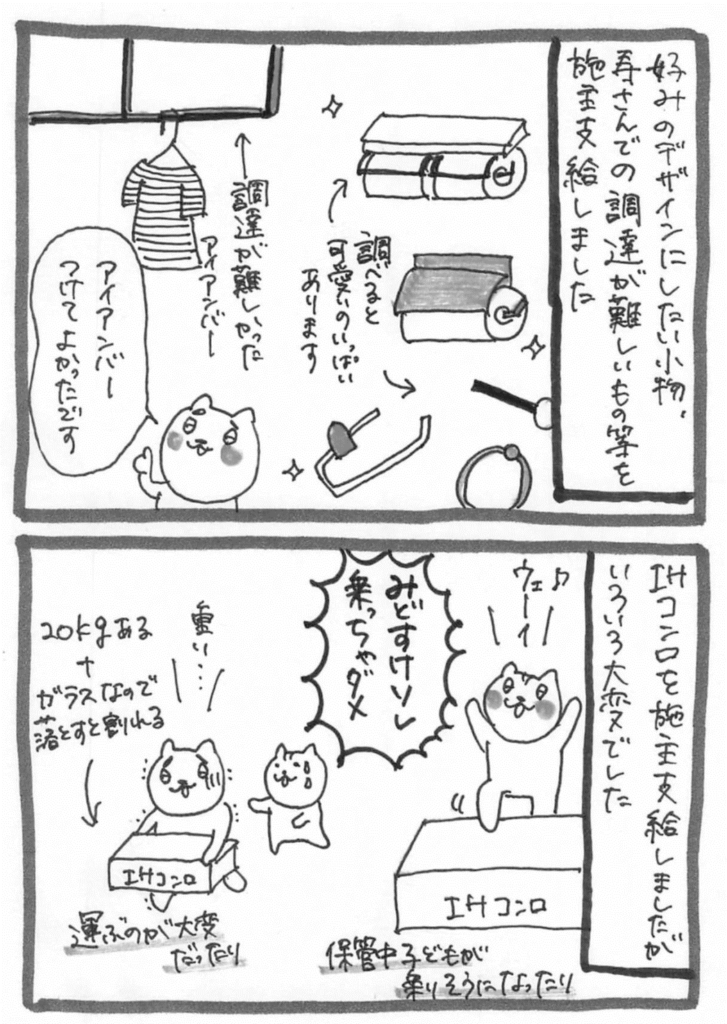 好みのデザインにしたい小物、
寿さんでの調達が難しいもの等を
施主支給しました
調べると
可愛いのいっぱい
あります
調達が難しかった
アイアンバー
アイアンバー
つけてよかったです
IHコンロを施主支給しましたが
いろいろ大変でした
ウェーイ♪
みどすけソレ
乗っちゃダメ
IHコンロ
保管中子どもが
乗りそうになったり
重い…
20kgある
+
ガラスなので
落とすと割れる
IHコンロ
運ぶのが大変
だったり